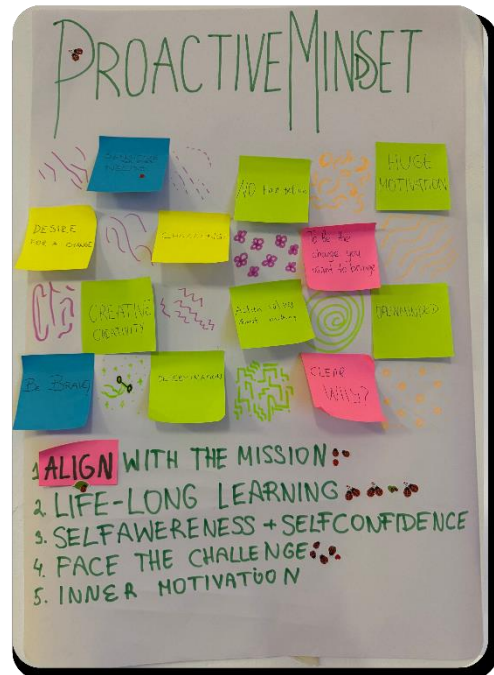 PROACTIVE MINDSET
HUGE
MOTIVATION
DESIRE
FOR A CHANGE
To be the
change you
want to bring
CREATIVE
CREATIVITY
Action
OPENMINDED
BE BRAVE
CLEAR
WHY?
1 ALIGN WITH THE MISSION
2. LIFE-LONG LEARNING
3. SELFAWERENESS + SELFCONFIDENCE
4. FACE THE CHALLENGE
5. INNER MOTIVATION